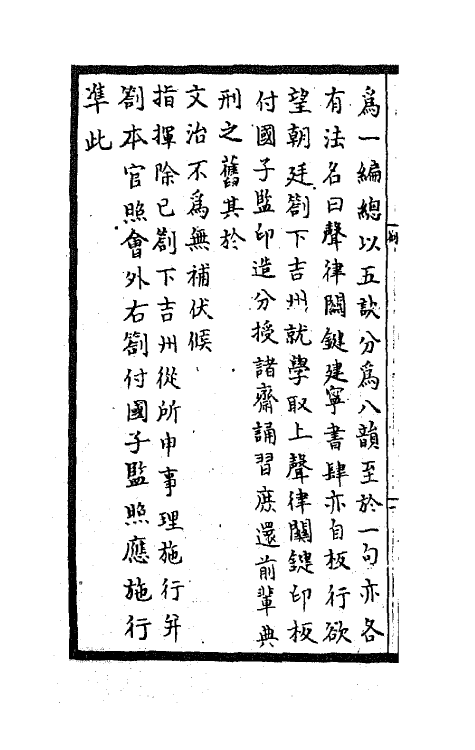 為一編總以五訣分為八韻至於一句亦各
有法名曰聲律關鍵建寧書肆亦自板行欲
望朝廷劄下吉州就學取上聲律關鍵印板
付國子監印造分授諸齋誦習庶還前輩典
刑之舊其於
文治不為無補伏候
指揮除已劄下吉州從所申事理施行并
劄本官照會外右劄付國子監照應施行
準此